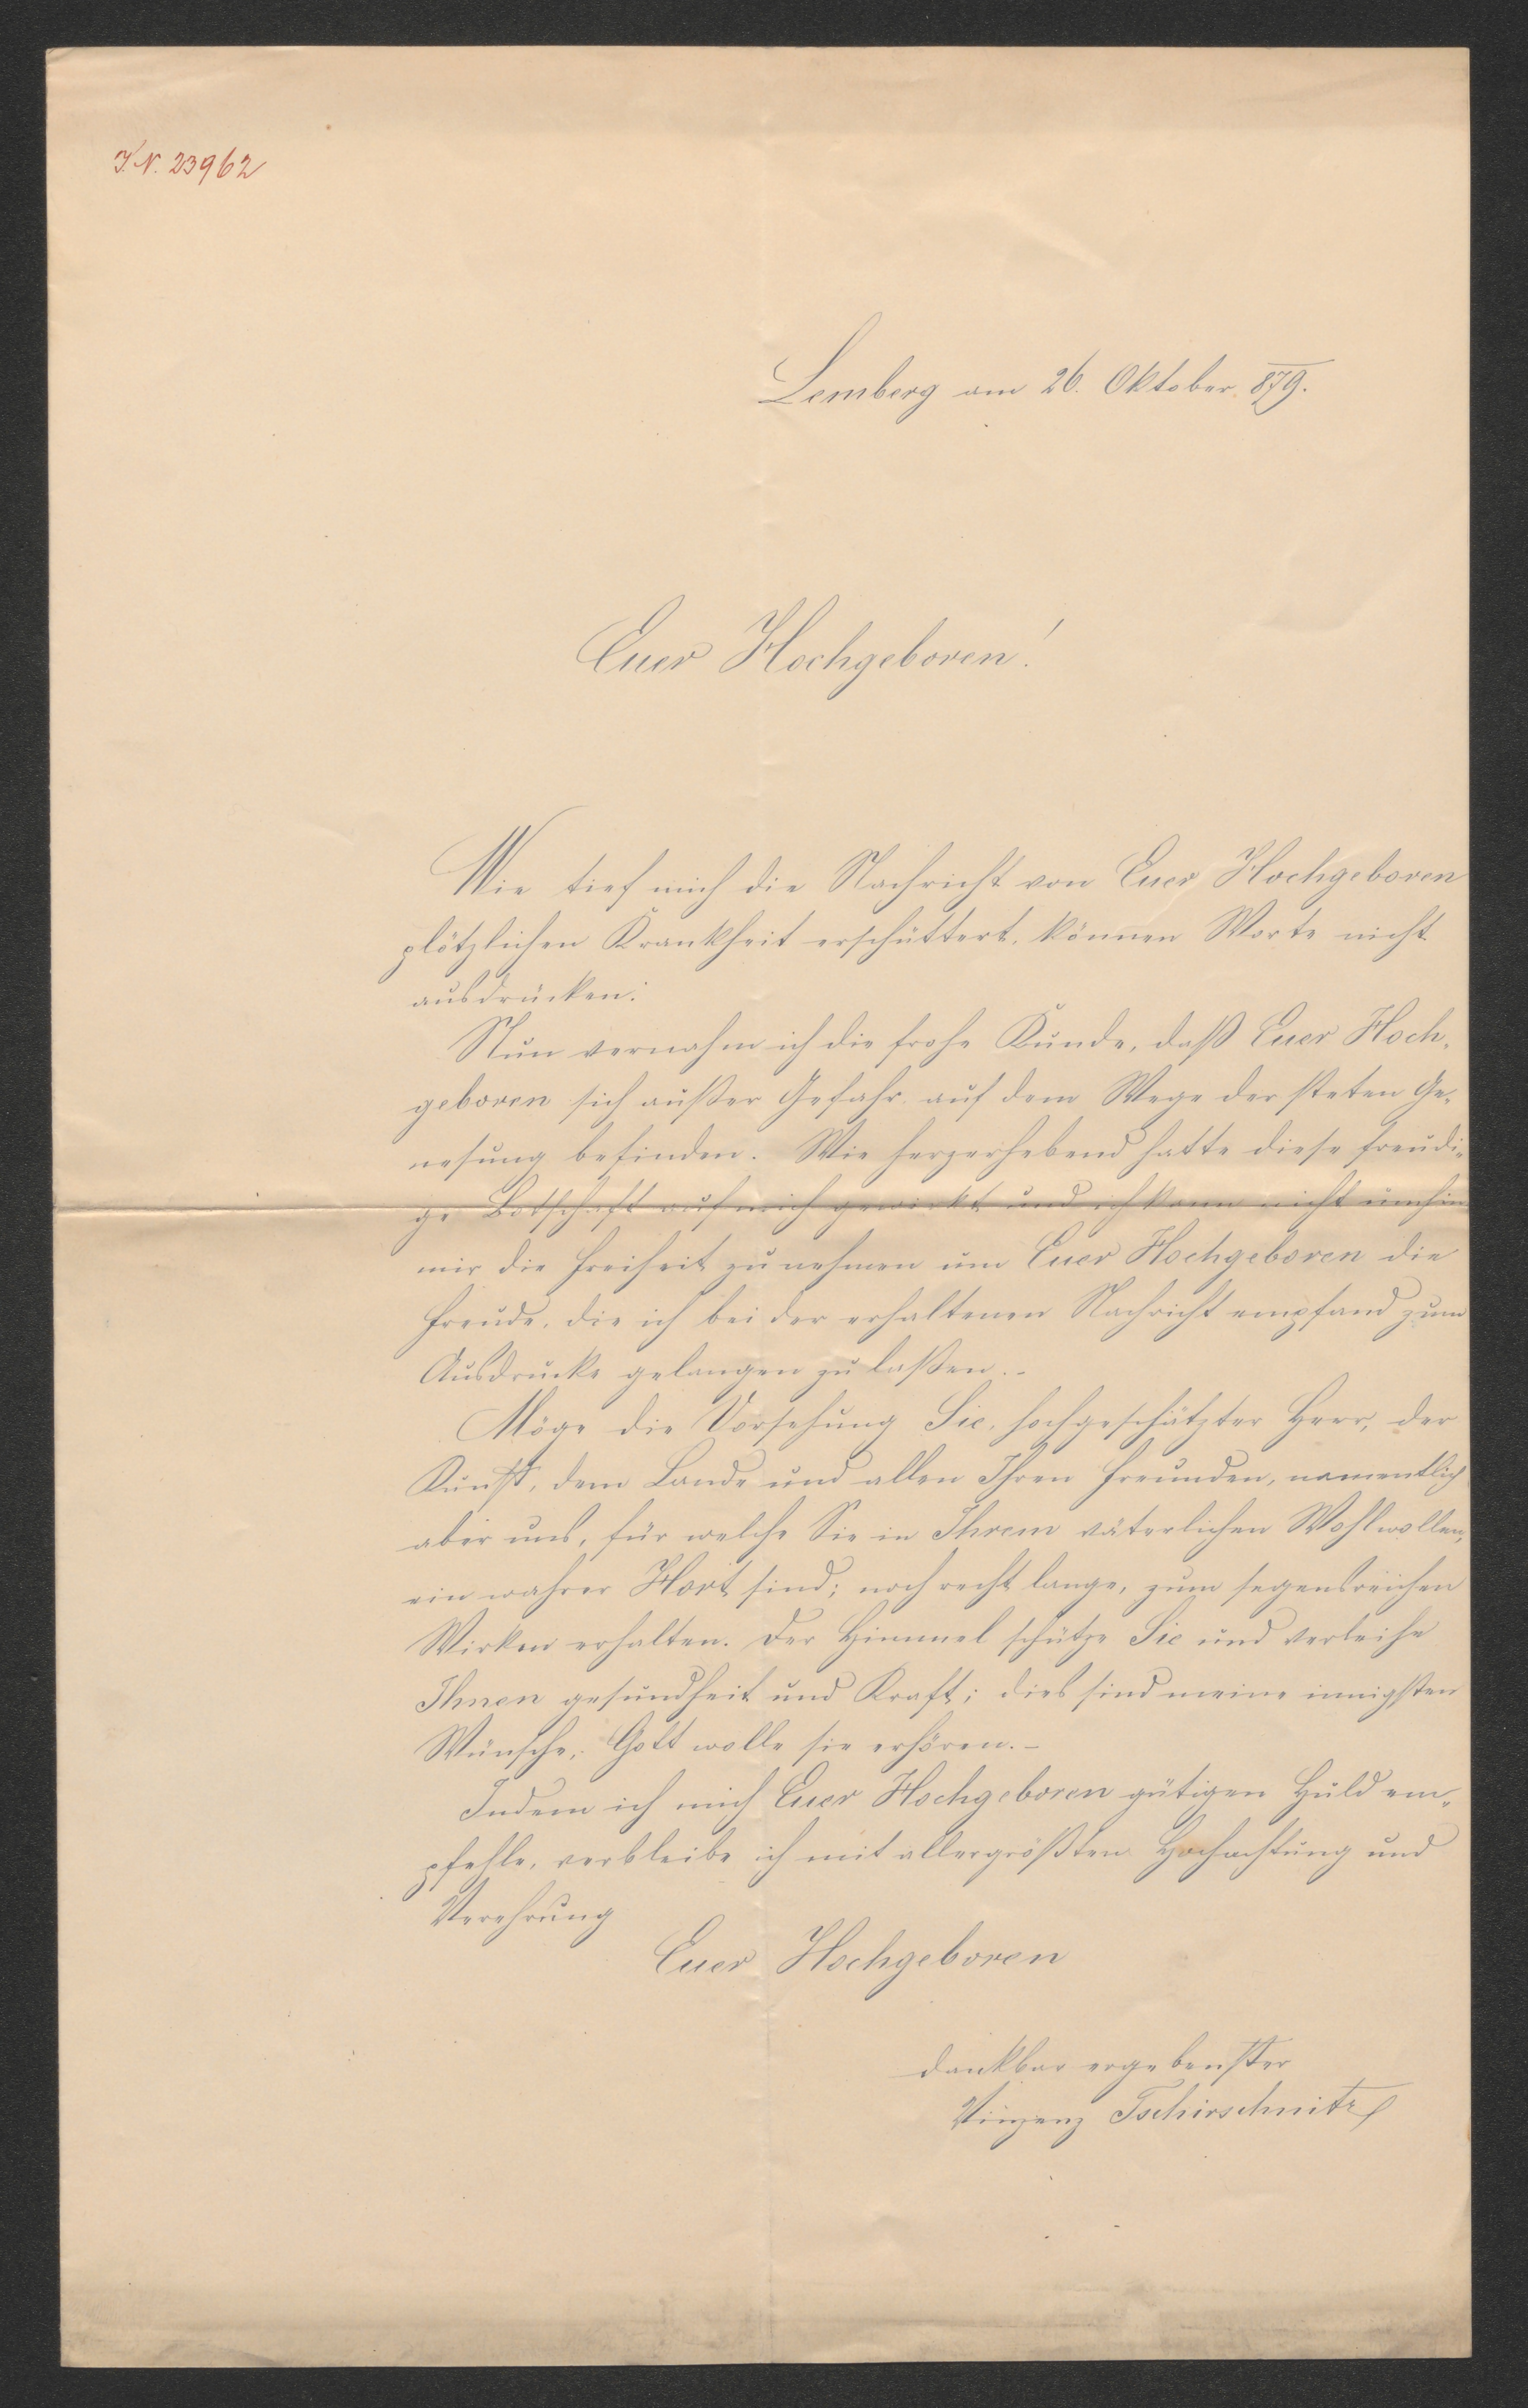 I.N. 23962
Lemberg am 26. Oktober 879.
Euer Hochgeboren!
Wie tief mich die Nachricht von Euer Hochgeboren
plötzlichen Krankheit erschüttert, können Worte nicht
ausdrücken.
Nun vernahm ich die frohe Kunde, daß Euer Hoch-
geboren sich außer Gefahr auf dem Wege der steten Ge-
nesung befinden. Wie herzerhebend hatte diese freudi-
ge Botschaft auf mich gewirkt und ich kann nicht umhin
mir die Freiheit zu nehmen um Euer Hochgeboren die
Freude, die ich bei der erhaltenen Nachricht empfand zum
Ausdrucke gelangen zu laßen.-
Möge die Vorsehung Sie, hochgeschätzter Herr, der
Kunst, dem Lande und allen Ihren Freunden, namentlich
aber uns, für welche Sie in Ihrem väterlichen Wohlwollen,
ein wahrer Hort sind; noch recht lange, zum segensreichen
Wirken erhalten. Der Himmel schütze Sie und verleihe
Ihnen gesundheit und Kraft; dies sind meine innigsten
Wünsche, Gott wolle sie erhören.-
Indem ich mich Euer Hochgeboren gütigen Huld em-
pfehle, verbleibe ich mit allergrößten Hochachtung und
Verehrung
Euer Hochgeboren
dankbar ergebenster
Vinzenz Tschirschnitz